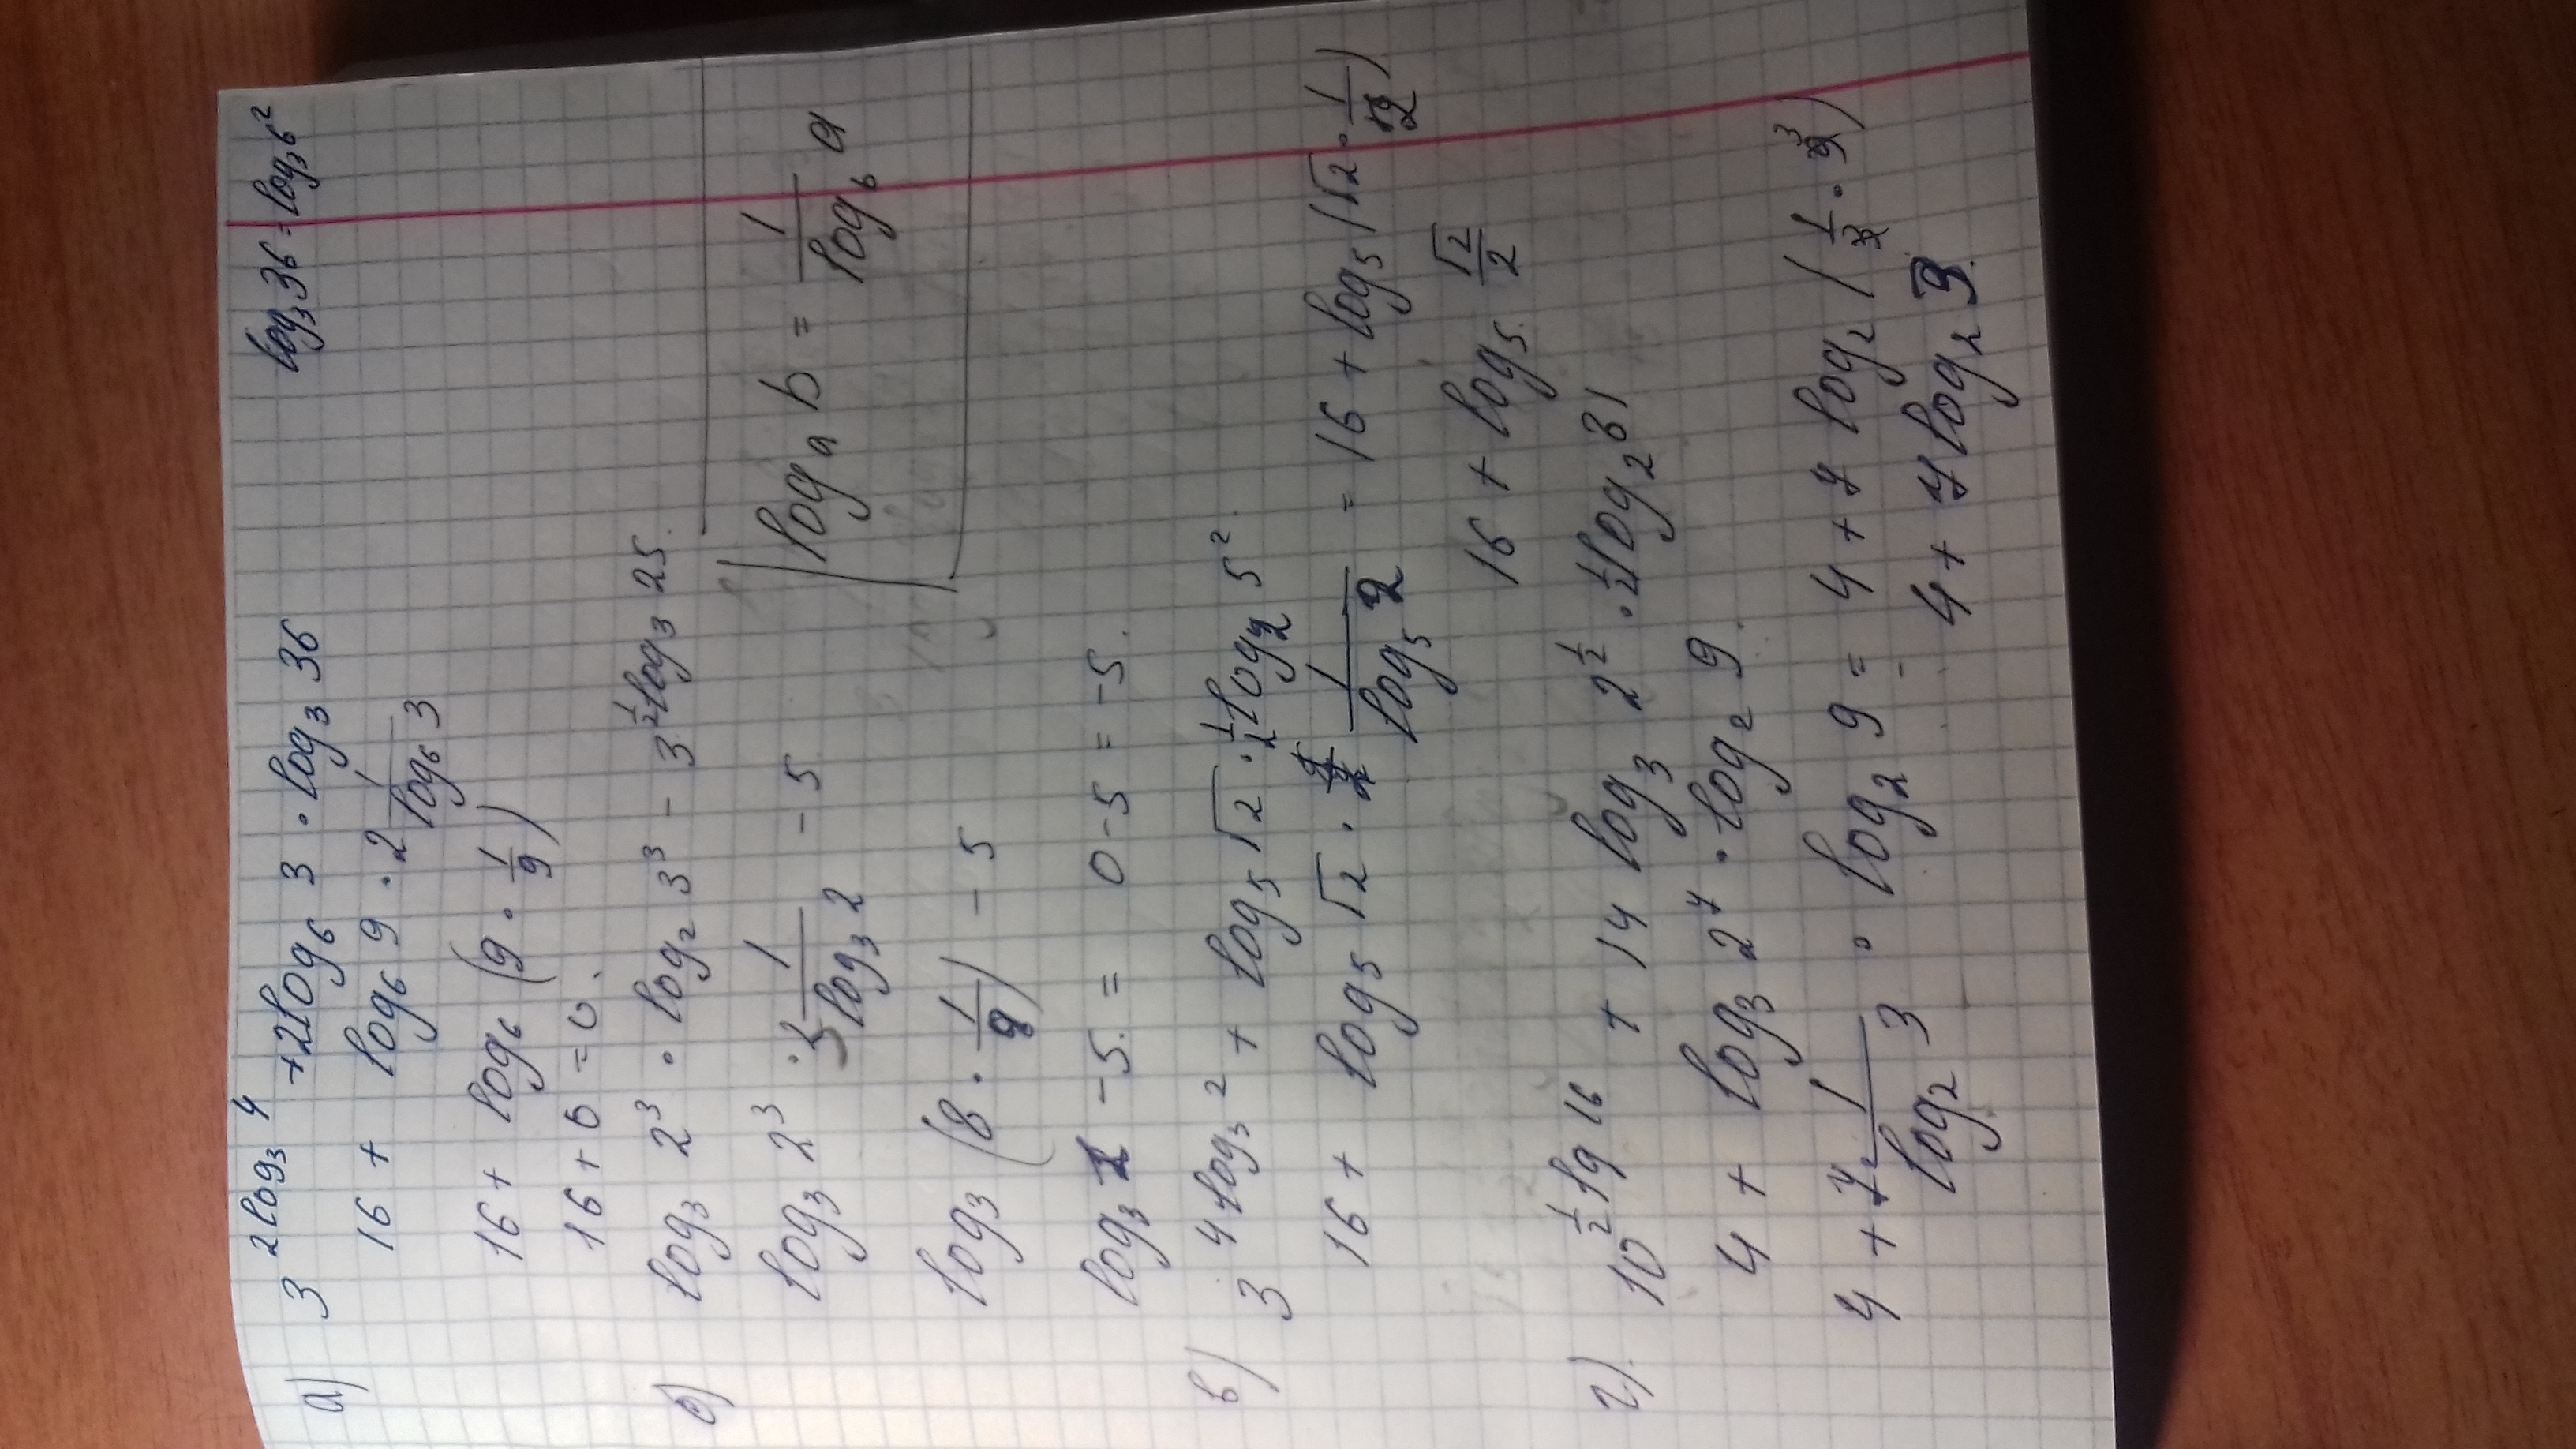 log₃36 = log₃6²
а) 3^(2log₃4) + 2log₆3 · log₃36
16 + log₆9 · 2 1/(log₆3)
16 + log₆(9 · 1/9)
16 + 0 = 0.
б) log₃2³ · log₂3³ - 3^(½log₃25).
log₃2³ · 3 1/(log₃2) - 5
log_a b = 1/(log_b a)
log₃(8 · 1/8) - 5
log₃1 - 5 = 0 - 5 = -5.
в) 3^(4log₃2) + log₅√2 · ½log₂5².
16 + log₅√2 · 1/(log₅2) = 16 + log₅(√2 · 1/2)
16 + log₅ √2/2
г). 10^(½lg16) + 14log₃2^(½) · ½log₂81
4 + log₃2⁷ · log₂9.
4 + 7 · 1/(log₂3) · log₂9 = 4 + 7log₂(1/3 · 3)
4 + 7log₂3.